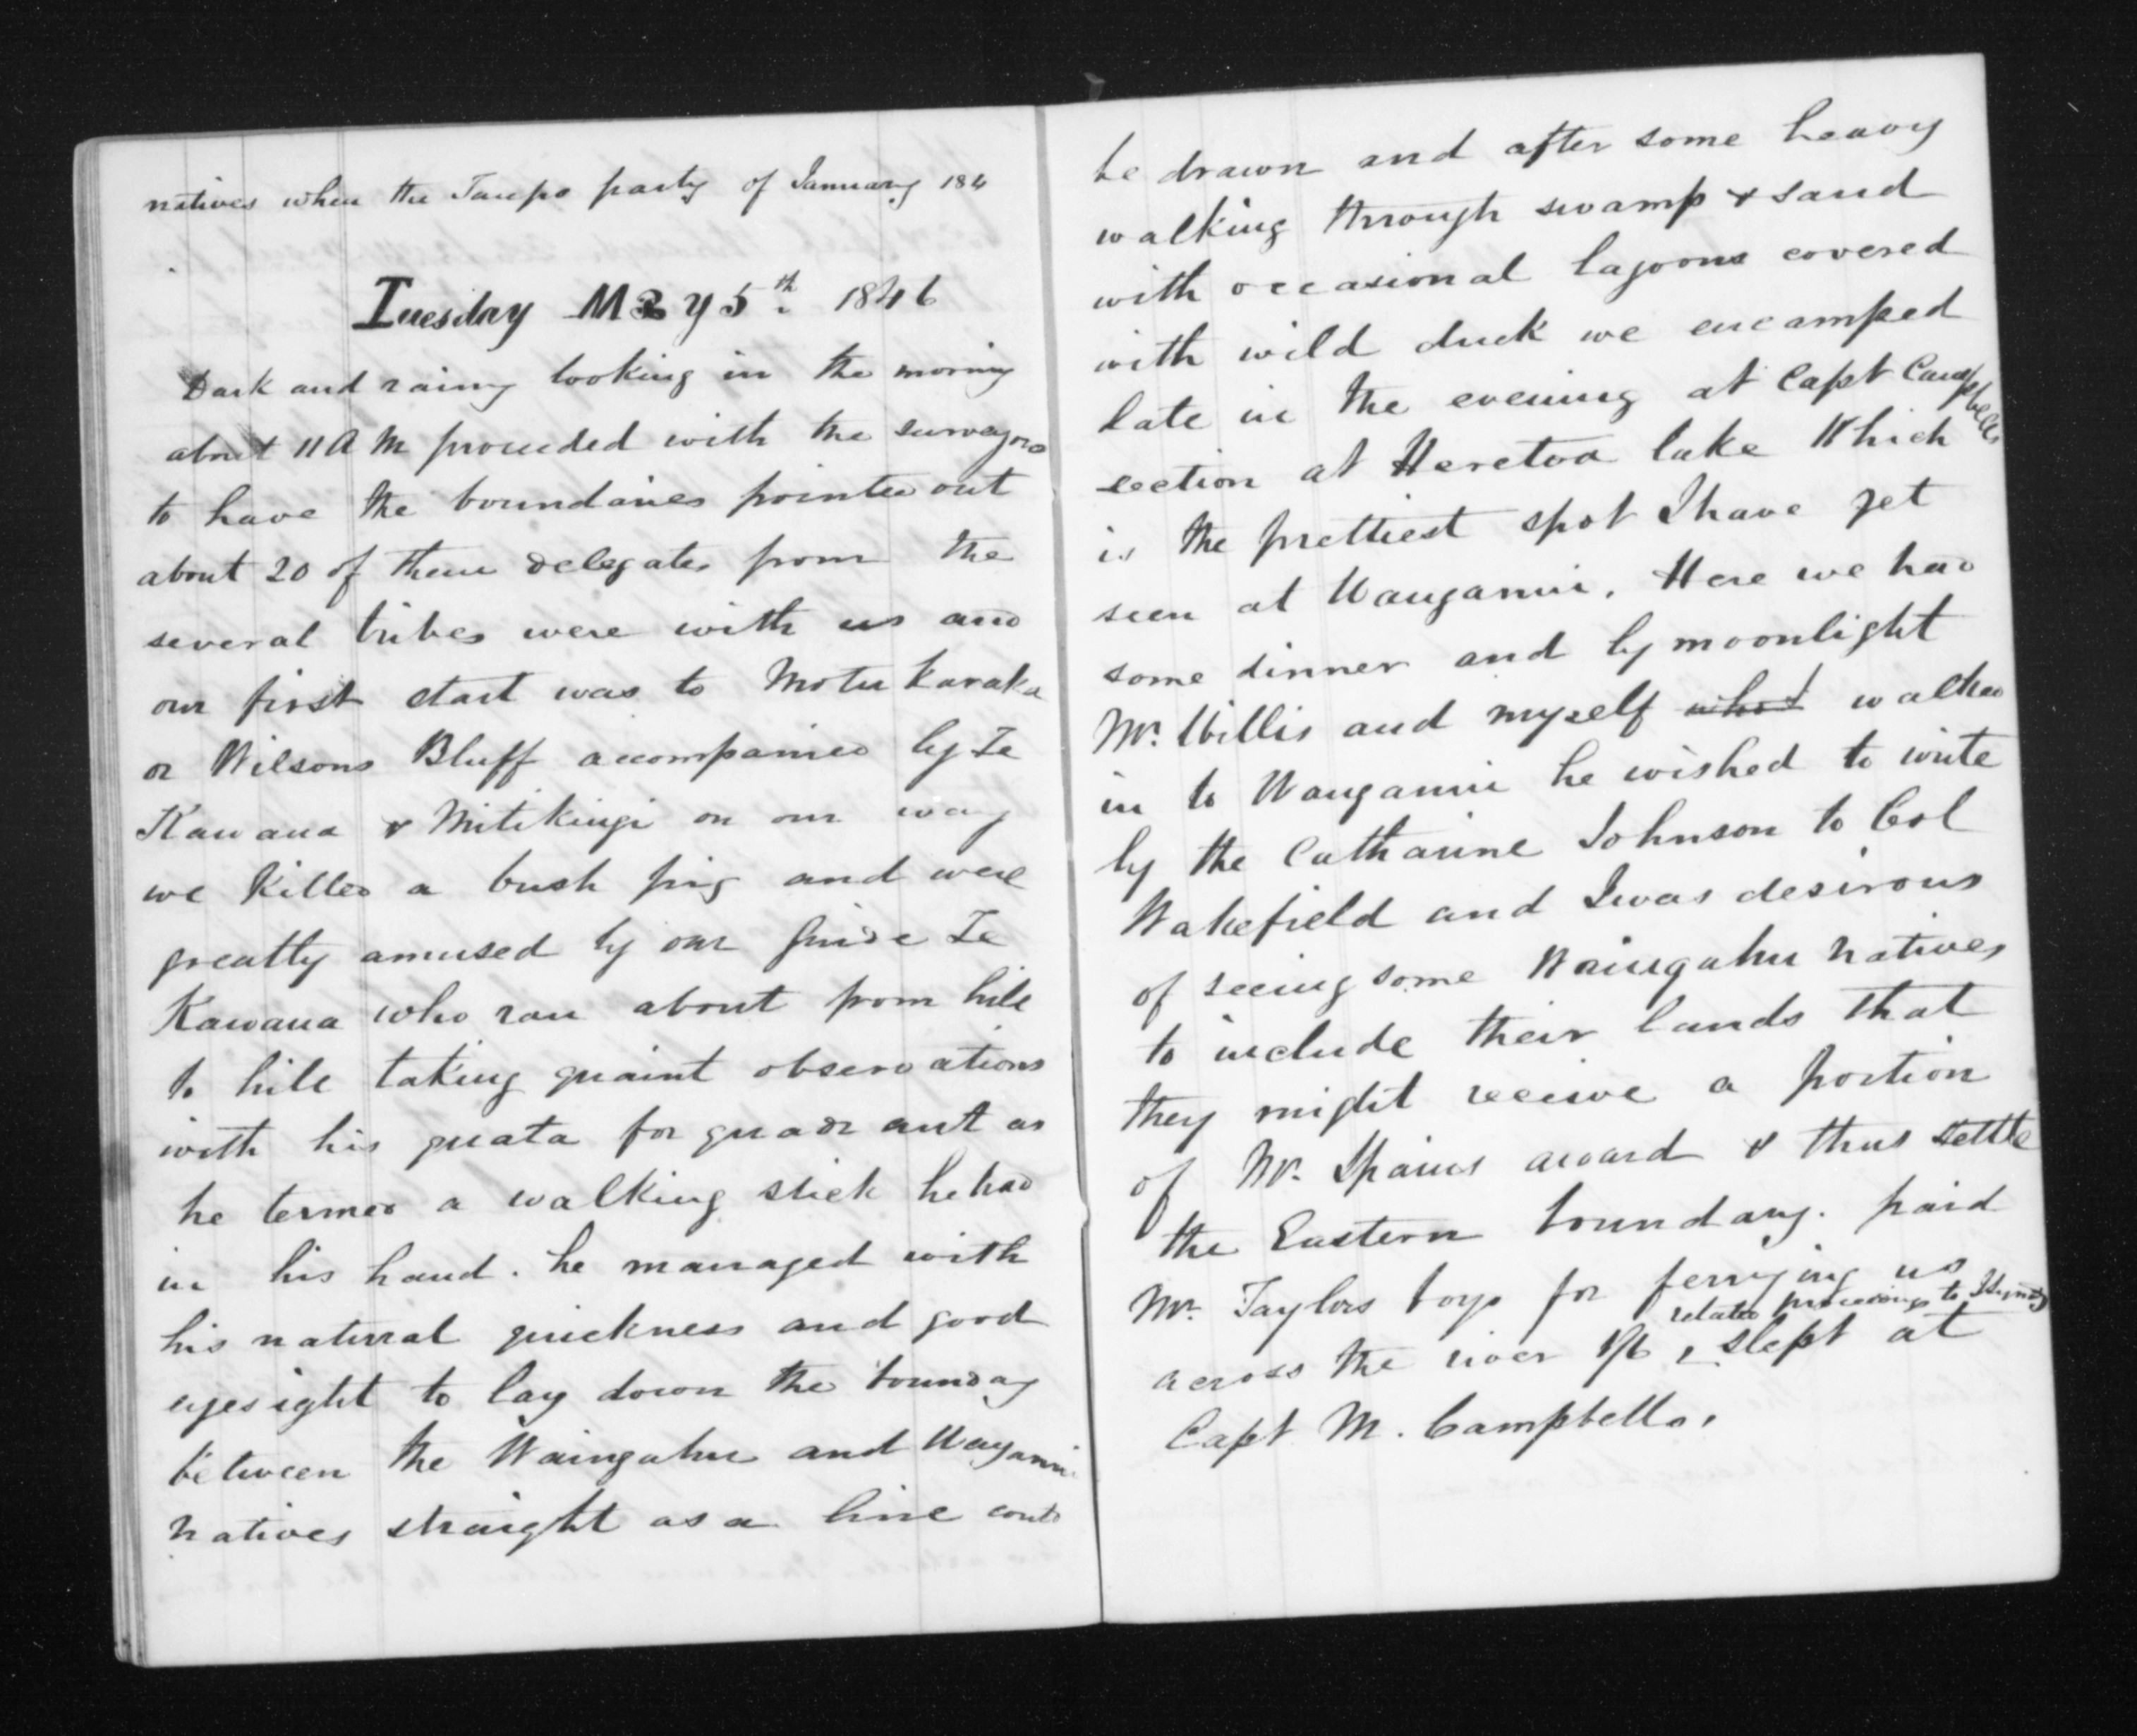 natives when the Taupo party of January 184
Tuesday May 5th. 1846
Dark and rainy looking in the morning
about 11 A M proceeded with the surveyors
to have the boundaries pointed out
about 20 of them delegates from the
several tribes were with us and
our first start was to Motu karaka
or Wilsons Bluff accompanied by Te
Kawana & Mitikingi on our way
we killed a bush pig and were
greatly amused by our guide Te
Kawana who ran about from hill
to hill taking quaint observations
with his quata for quadrant as
he termed a walking stick he had
in his hand. he managed with
his natural quickness and good
eyesight to lay down the boundary
between the Waingahu and Waganui
natives straight as a line could
be drawn and after some heavy
walking through swamp & sand
with occasional lagoons covered
with wild duck we encamped
late in the evening at Capt Campbells
section at Heretoa lake Which
is the prettiest spot I have yet
seen at Wanganui. Here we had
some dinner and by moonlight
Mr. Wills and myself who walked
in to Wanganui he wished to write
by the Catharine Johnson to Col
Wakefield and I was desirous
of seeing some Waingahu natives
to include their lands that
they might receive a portion
of Mr. Spains award & thus settle
the Eastern boundary. paid
Mr. Taylors boys for ferrying us
across the river 1/6, related proceedings to slept at
Capt M. Campbells.